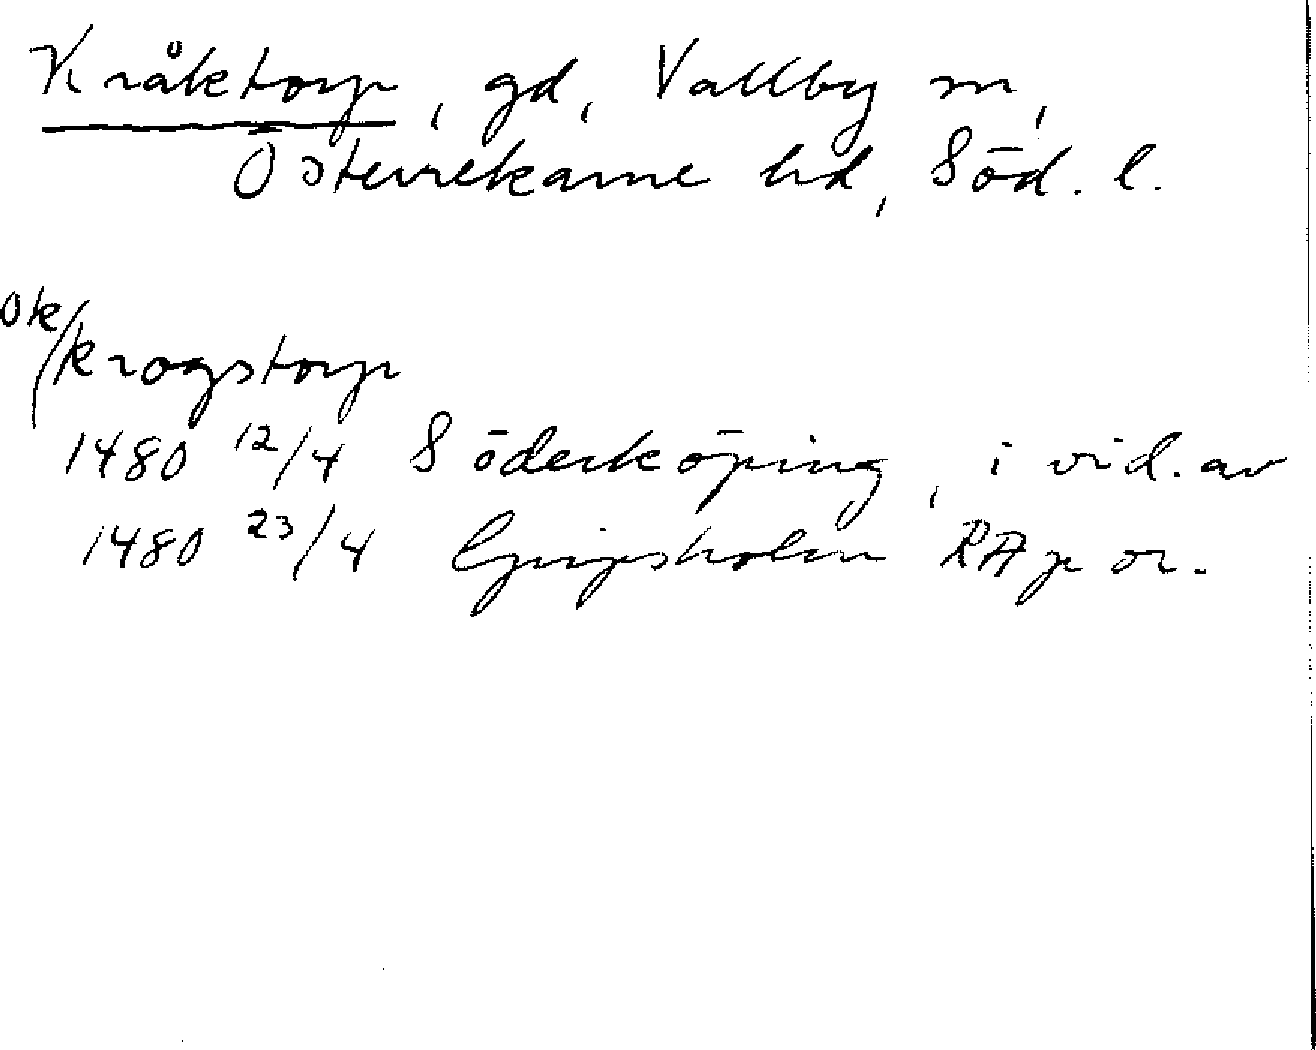 Kråktorp, gd, Vallby sn,
Österrekarne hd, Söd. l.
Ok/krogstorp
1480 12/4 Söderköping, i vid. av
1480 23/4 Gripsholm RAp or.